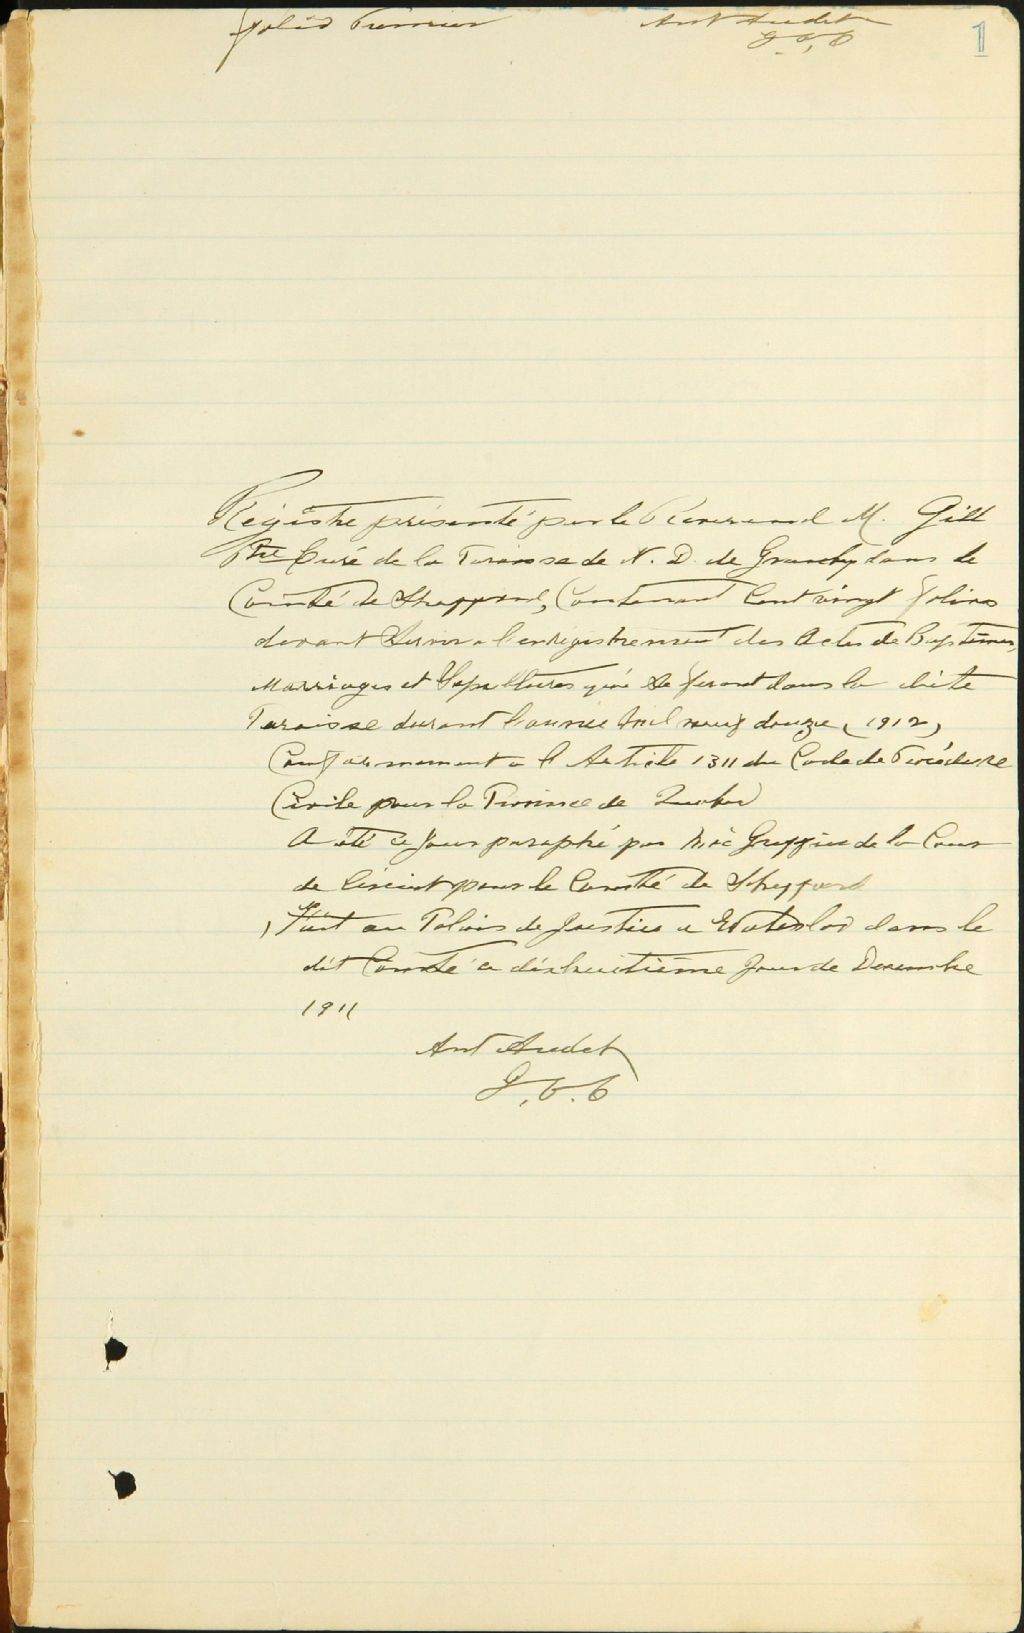 folio Premier Ant Audet 1
G. C. C
Régistre présenté par le Reverend M. Gill
Ptre Curé de la Paroisse de N. D. de Granby dans le
Comté de Shefford, Contenant Cent vingt folios
devant Servir a l'enrégistrement des Actes de Baptêmes,
Marriages et Sépultures qui se feront dans la dite
Paroisse durant l'année mil neuf douze (1912)
Conformement a l'Article 1311 du Code de Procédure
Civile pour la Province de Quebec
A été ce jour paraphé par moi Greffier de la Cour
de Circuit pour le Comté de Shefford
Fait au Palais de Justice a Waterloo dans le
dit Comté ce dixhuitième jour de Decembre
1911
Ant Audet
G. C. C